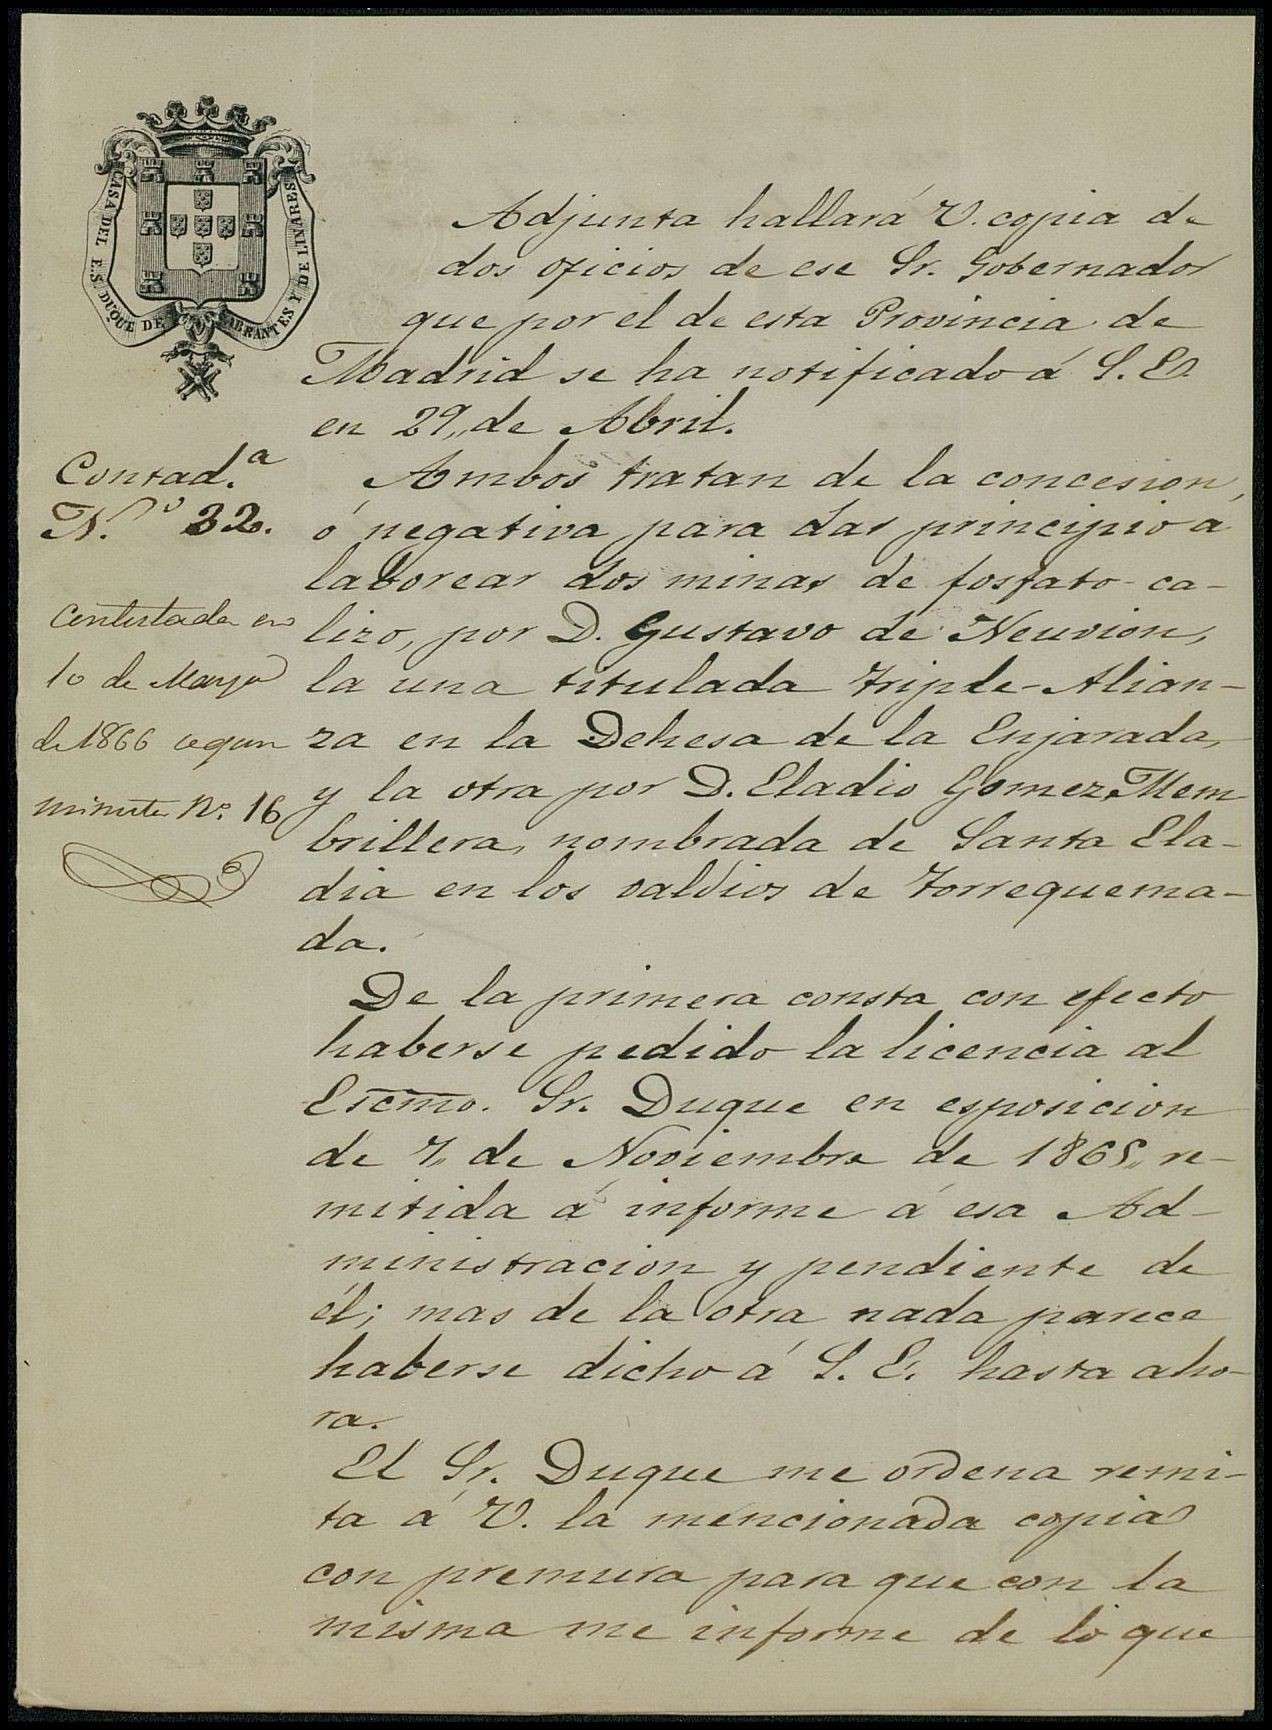 CASA DEL E.S. DUQUE DE ABRANTES Y DE LINARES
Contad.ª
N.º 32.
Contestada en
10 de Mayo
de 1866 segun
minuta N.º 16
Adjunta hallará V. copia de
dos oficios de ese Sr. Gobernador
que por el de esta Provincia de
Madrid se ha notificado á S. E.
en 29,, de Abril.
Ambos tratan de la concesion,
ó negativa para dar principio a
laborear dos minas de fosfato-ca-
lizo, por D. Gustavo de Neuvion,
la una titulada Triple-Alian-
za en la Dehesa de la Enjarada,
y la otra por D. Eladio Gomez Mem
brillera, nombrada de Santa Ela-
dia en los valdios de Torrequema-
da.
De la primera consta con efecto
haberse pedido la licencia al
Escmo. Sr. Duque en esposicion
de 7,, de Noviembre de 1865,, re-
mitida á informe á esa Ad-
ministracion y pendiente de
él; mas de la otra nada parece
haberse dicho á S. E. hasta aho-
ra.
El Sr. Duque me ordena remi-
ta á V. la mencionada copia
con premura para que con la
misma me informe de lo que